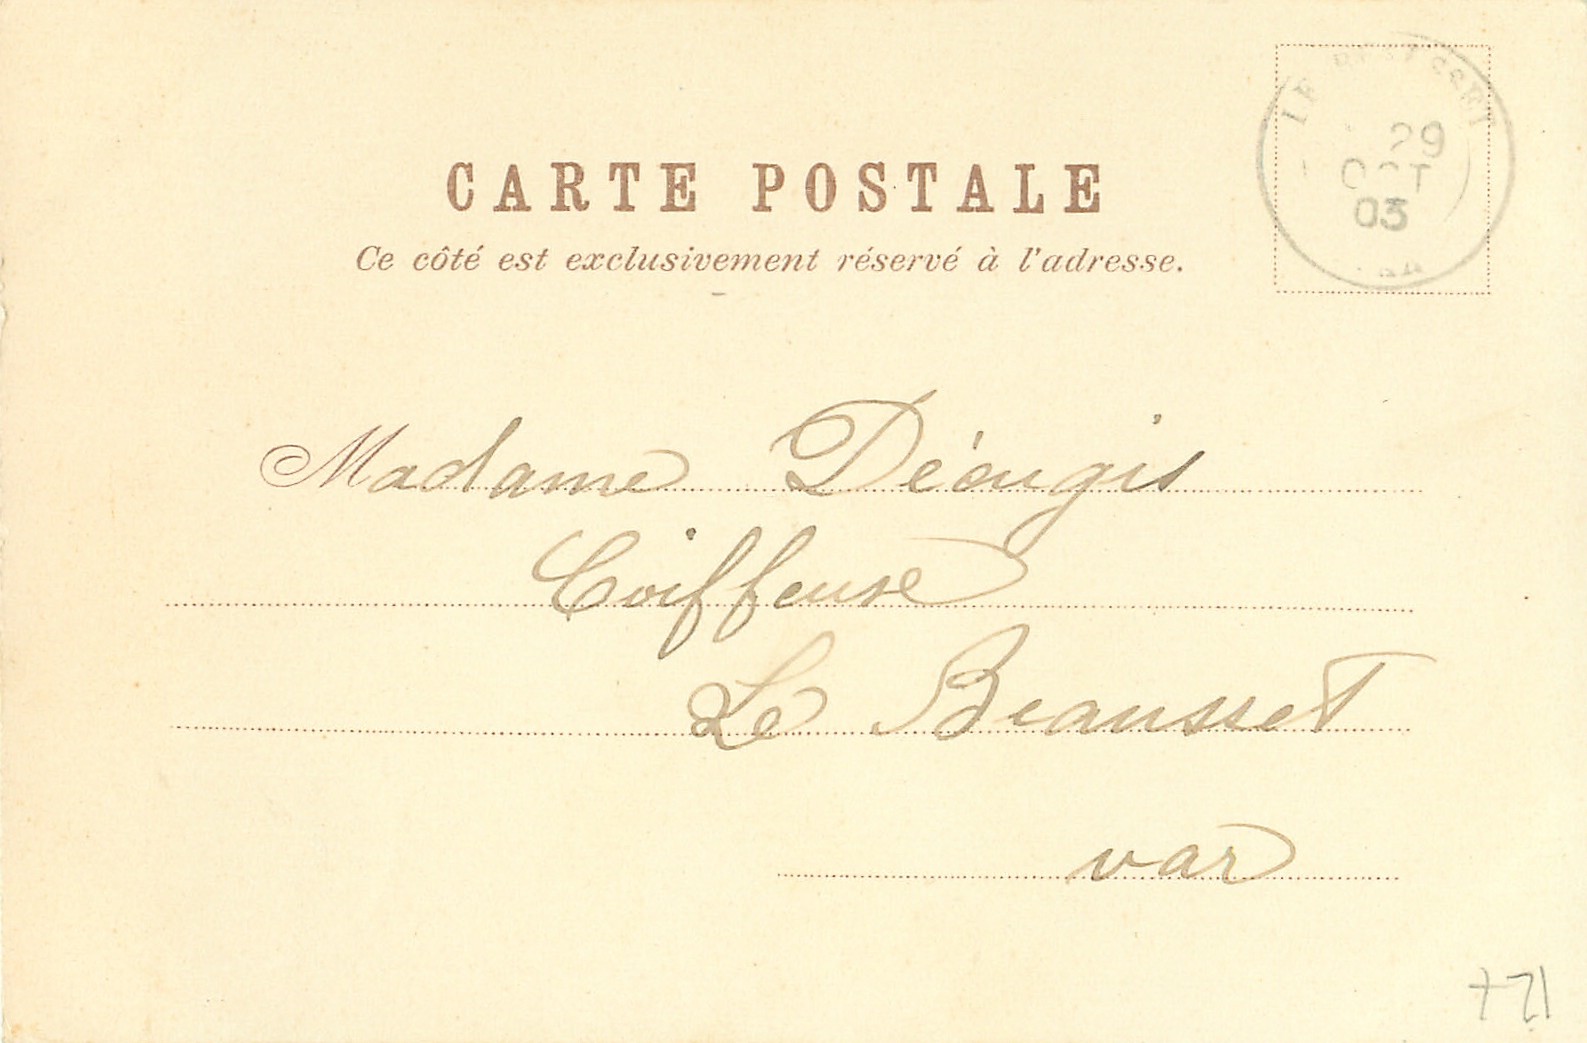 CARTE POSTALE
Ce côté est exclusivement réservé à l'adresse.
LE BEAUSSET
29
OCT
03
VAR
Madame
Coiffeuse
Le Beausset
var